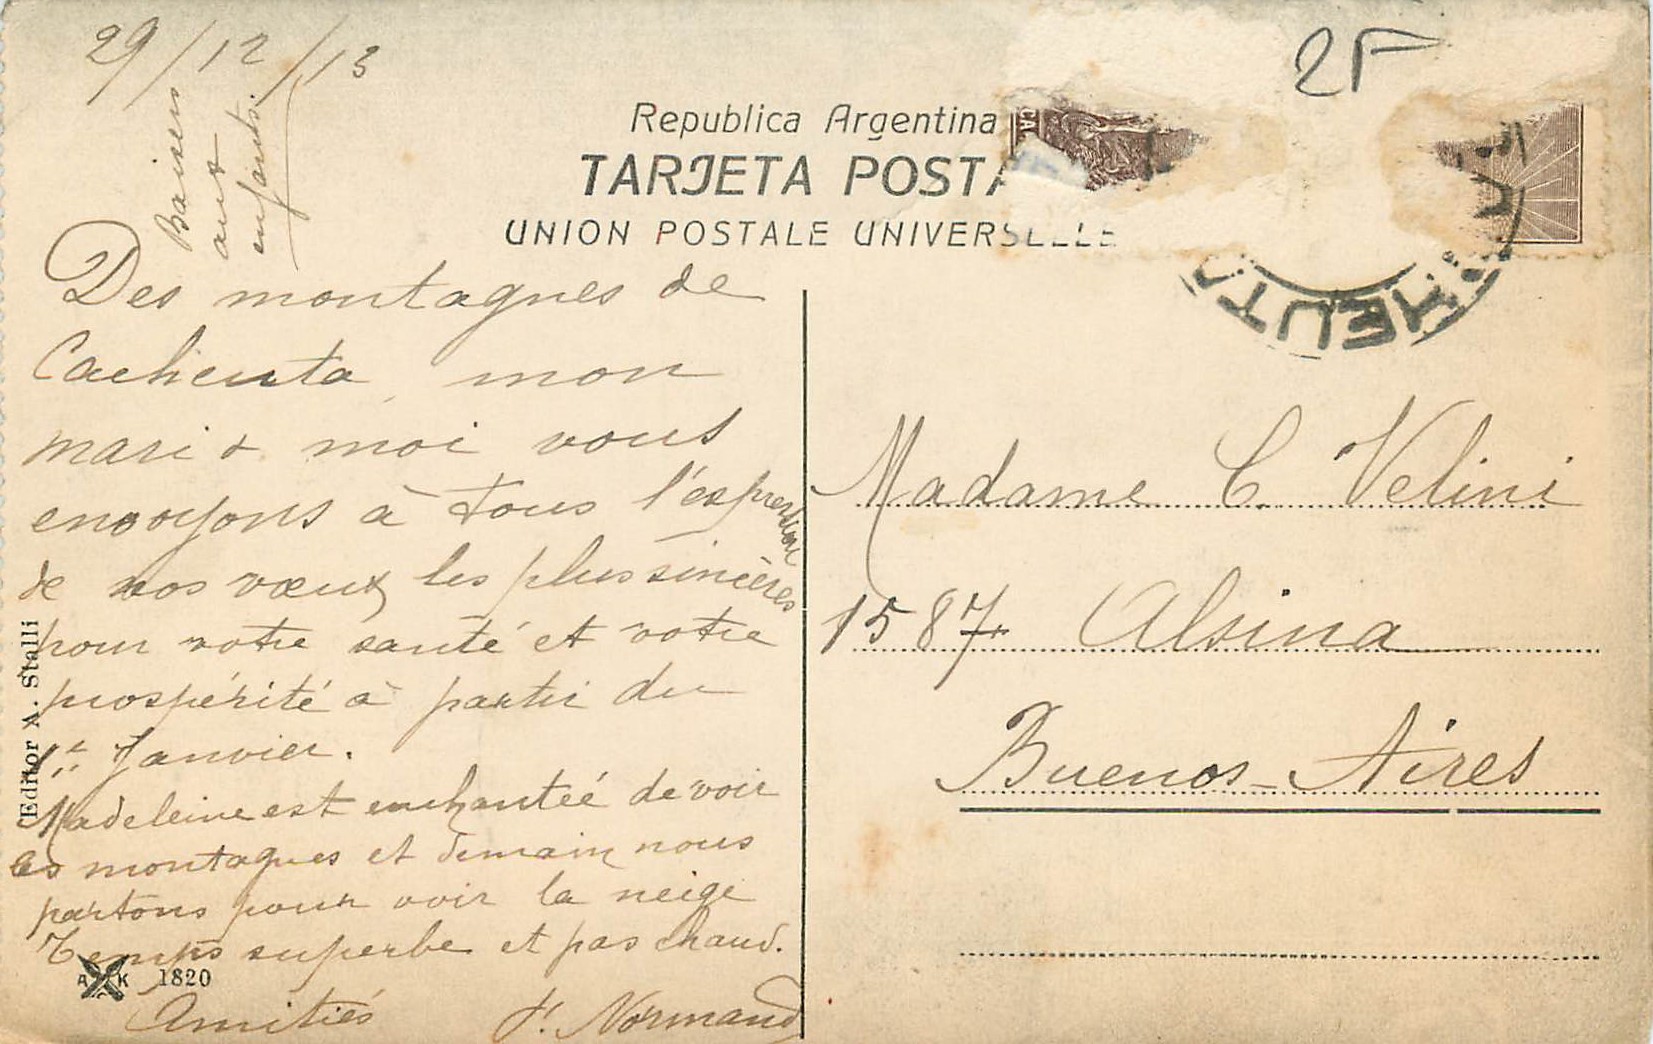 29/12/13
2F
Baisers
aux
enfants.
Republica Argentina
TARJETA POSTA
UNION POSTALE UNIVERSELLE
CAC
HEUTA
Des montagnes de
Cacheuta mon
mari & moi vous
envoyons à tous l'expression
de nos vœux les plus sincères
pour votre santé et votre
prospérité à partir du
1er Janvier.
Madeleine est enchantée de voir
les montagnes et demain nous
partons pour voir la neige
Temps superbe et pas chaud.
Amitiés Normand
Madame C. Velini
1587 Alsina
Buenos-Aires
Editor A. Stalli
A K
1820